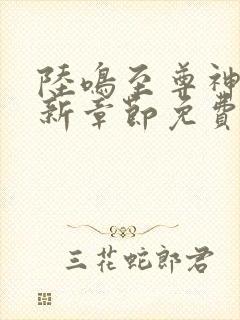 陸鳴至尊神
新章節免費
三花蛇郎君